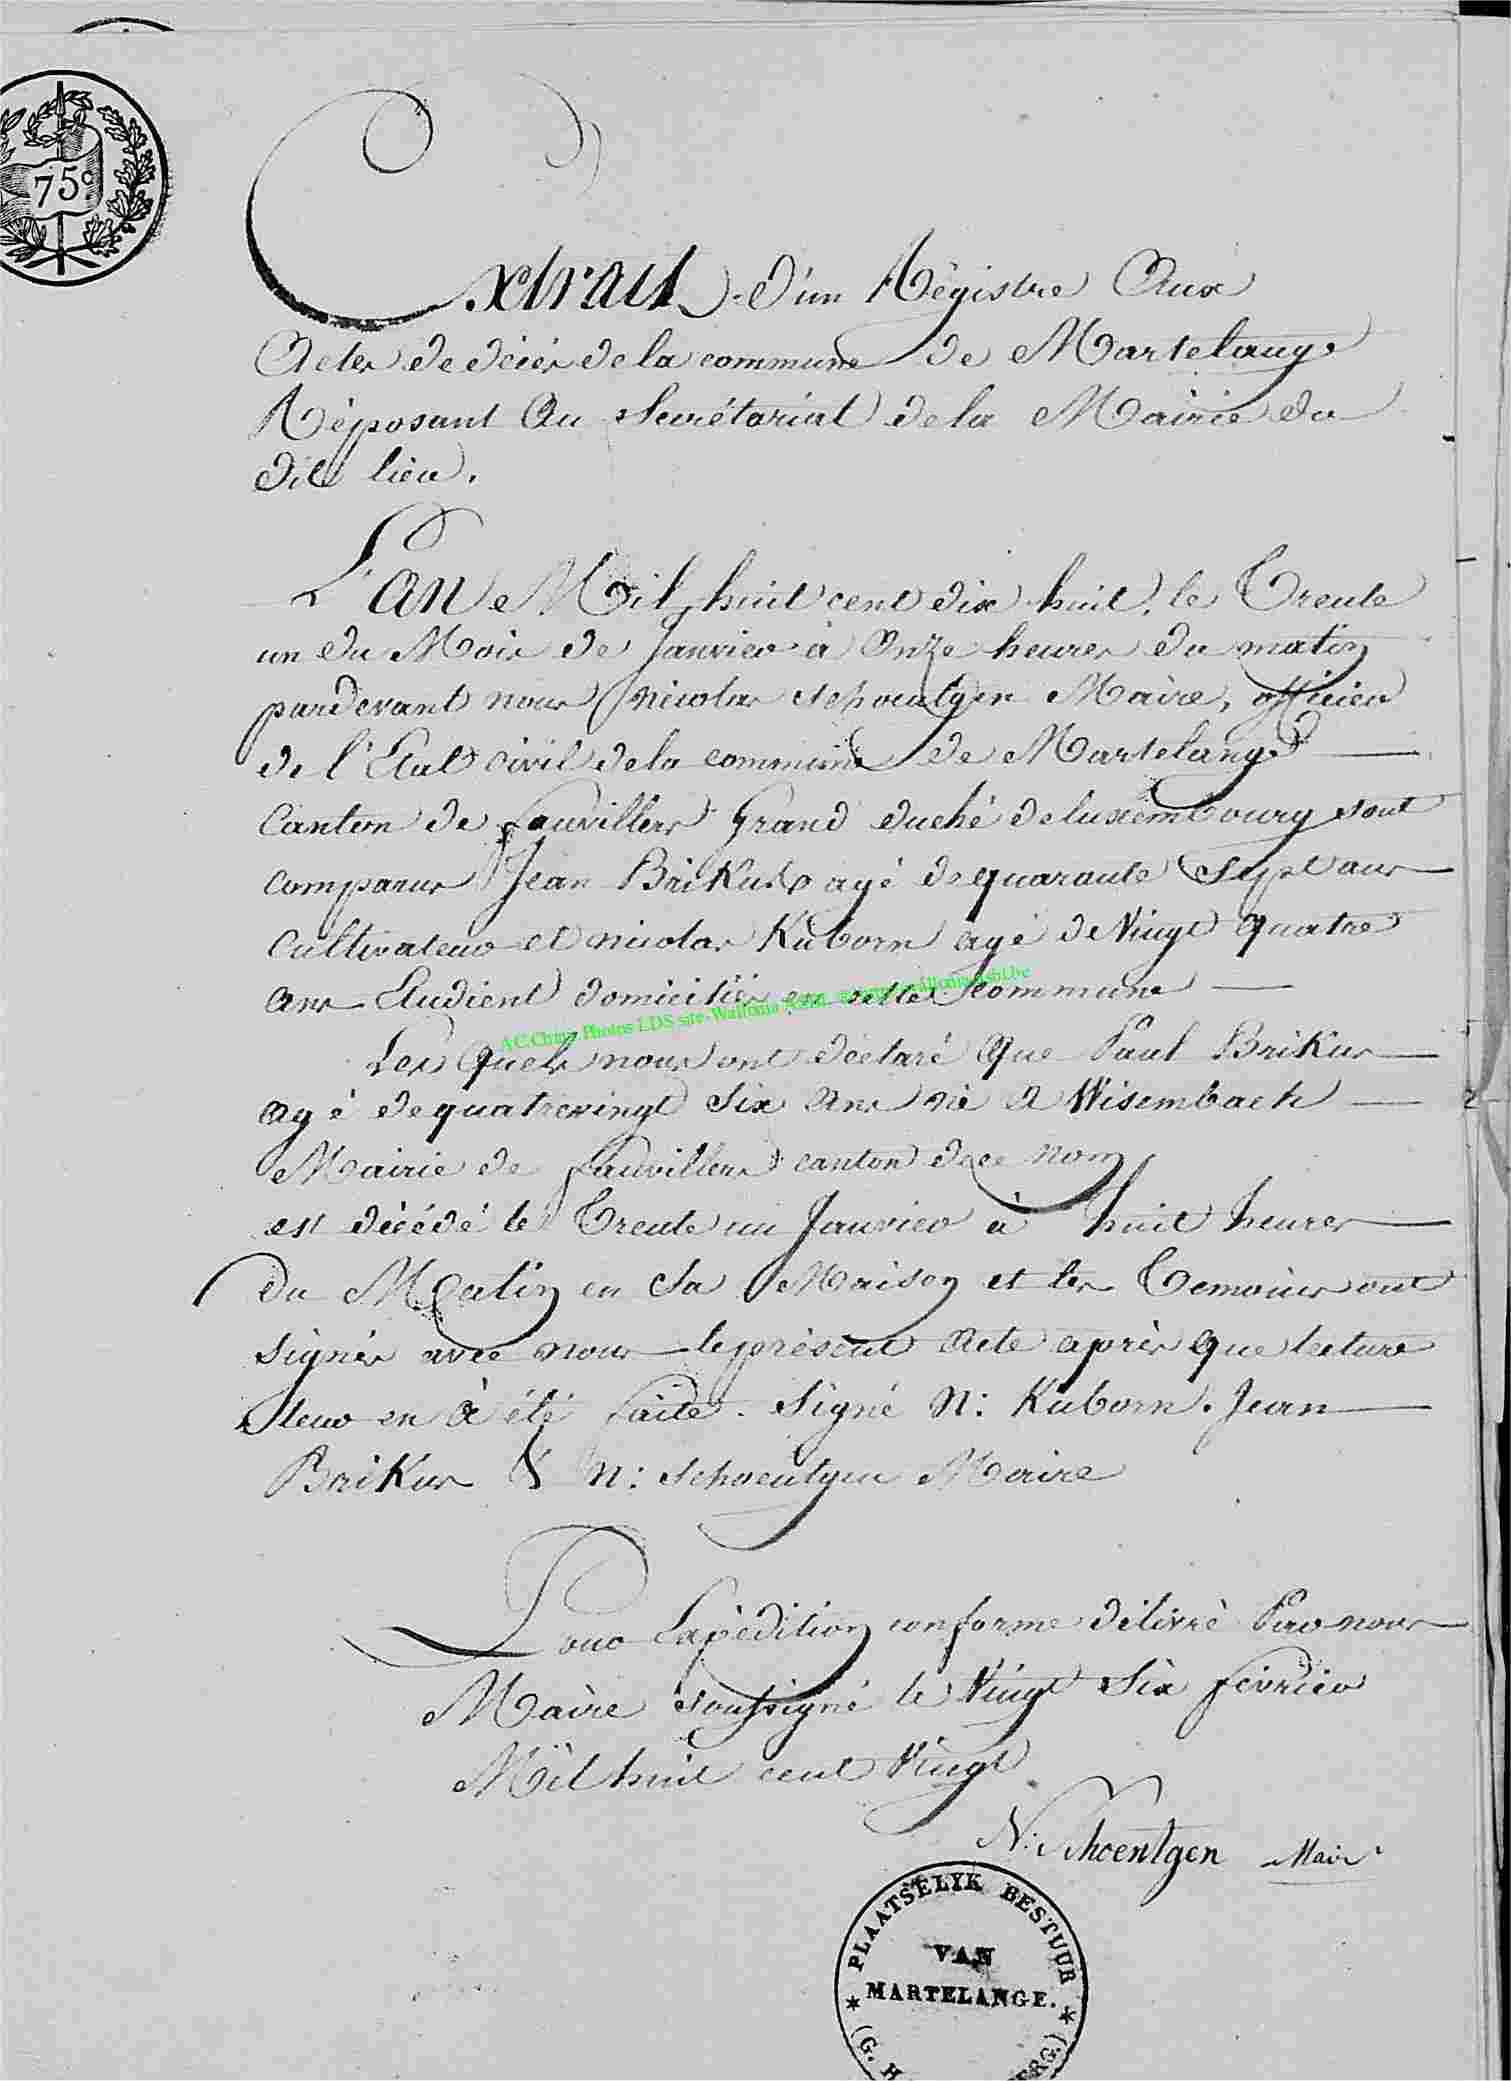 75c.
Extrait d'un Régistre Aux
Actes de décès de la commune de Martelange
Réposant Au Secrétariat de la Mairie du
dit lieu.
L'an Mil huit cent dix huit, le Trente
un du Mois de Janvier à Onze heures du matin
pardevant nous Nicolas Schoentgen Maire, officier
de l'Etat civil de la commune de Martelange
Canton de fauvillers Grand duché de luxembourg sont
comparus Jean BriKus agé de quarante Sept ans
Cultivateur et nicolas Kuborn agé de Vingt quatre
ans Etudient domiciliés en cette Commune
A.C.Chine Photos LDS site Wallonia
Les Quels nous ont déclaré Que Paul BriKus
agé de quatrevingt Six Ans né A Wisembach
Mairie de fauvillers canton de ce nom
est décédé le Trente un Janvier à huit heures
Du Matin en Sa Maison et les Temoins ont
signés avec nous le présent Acte après que lecture
leur en à été faite. Signé N: Kuborn. Jean
BriKus & N: Schoentgen Maire
Pour Expédition conforme délivré Par nous
Maire soussigné le Vingt Six février
Mil huit cent Vingt
N: Schoentgen Maire
PLAATSELYK BESTUUR
VAN
MARTELANGE.
(G. H ERG.)